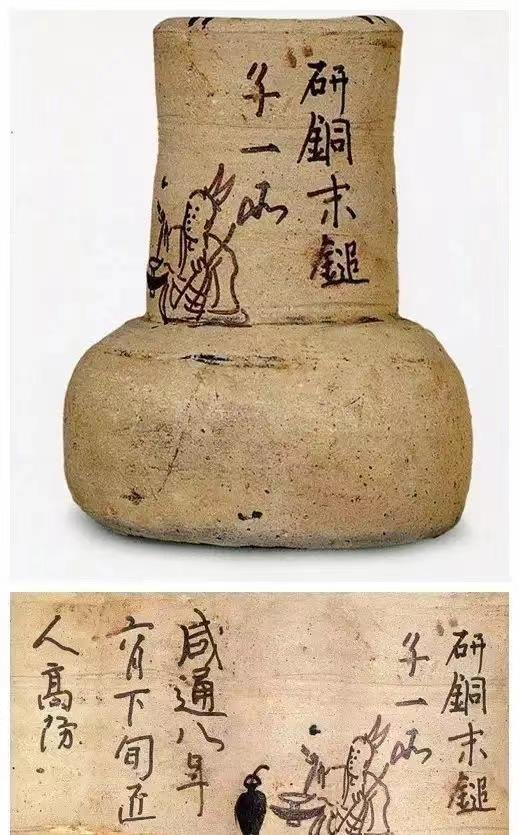 研銅末鎚
子一所
研銅末鎚
子一所
咸通八年
六月下旬匠
人高防